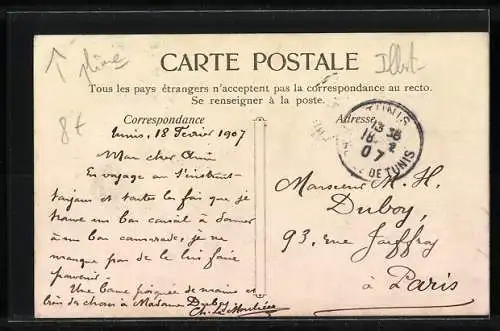 Illust.
8f
CARTE POSTALE
Tous les pays étrangers n'acceptent pas la correspondance au recto.
Se renseigner à la poste.
Correspondance
Adresse
TUNIS
18 2
07
DE TUNIS
Tunis, 18 Février 1907
Mon cher Ami
En voyage on s'instruit
toujours et toutes les fois que je
trouve un bon conseil à donner
à un bon camarade, je ne
manque pas de le lui faire
parvenir.
Une bonne poignée de mains et
bien des choses à Madame Duboy
Monsieur M. H.
Duboy,
93, rue Jouffroy
à Paris